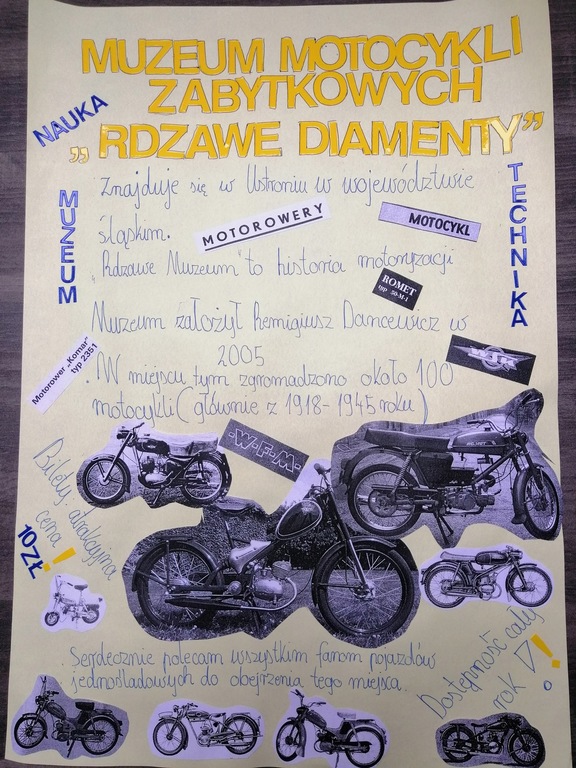 MUZEUM MOTOCYKLI
ZABYTKOWYCH
„RDZAWE DIAMENTY”
NAUKA
MUZEUM
TECHNIKA
Znajduje się w Ustroniu w województwie
śląskim.
MOTOROWERY
MOTOCYKL
„Rdzawe Muzeum" to historia motoryzacji
ROMET
typ 50-M-1
Muzeum założył Remigiusz Dancewicz w
2005
Motorower „Komar”
typ 2351
WSK
. W miejscu tym zgromadzono około 100
motocykli (głównie z 1918-1945 roku)
W·F·M
Bilety atrakcyjna
cena!
10ZŁ
. Serdecznie polecam wszystkim fanom pojazdów
jednośladowych do obejrzenia tego miejsca.
Dostępność cały
rok!